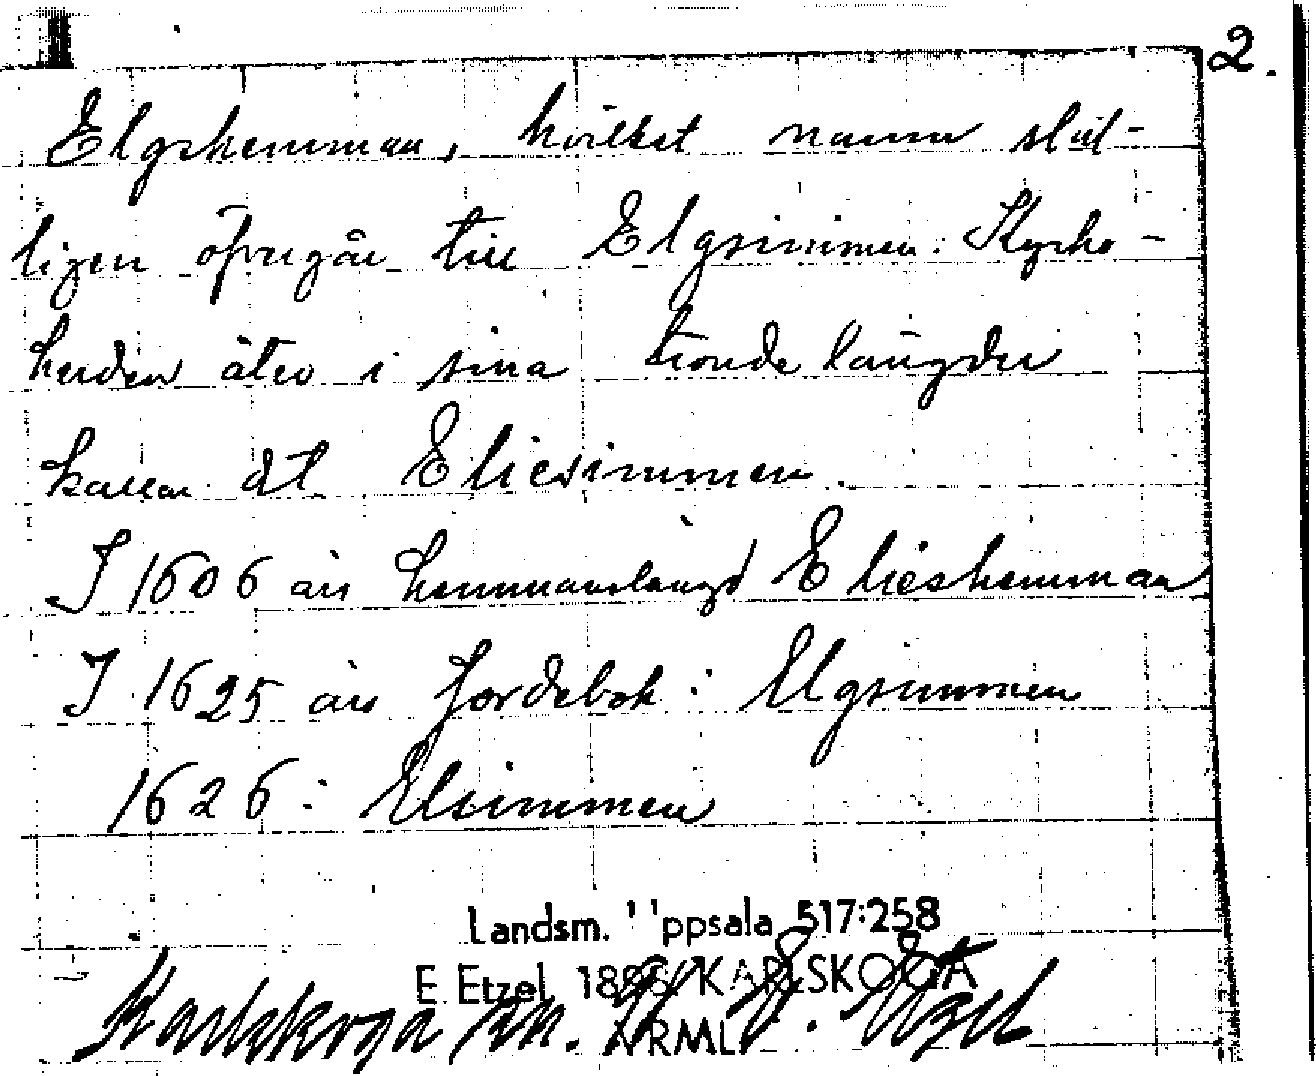 2.
Elgshemman, hvilket namn slut-
ligen öfvergår till Elgsimmen. Kyrko-
herden åter i sina tionde längder
kallar dt Eliesimmen.
I 1606 års hemmanslängd Elieshemman
I 1625 års Jordebok: Elgsimmen
1626: Elsimmen
Landsm. Uppsala 517:258
E. Etzel KARLSKOGA
VRML
Karlskoga sn. E. Etzel